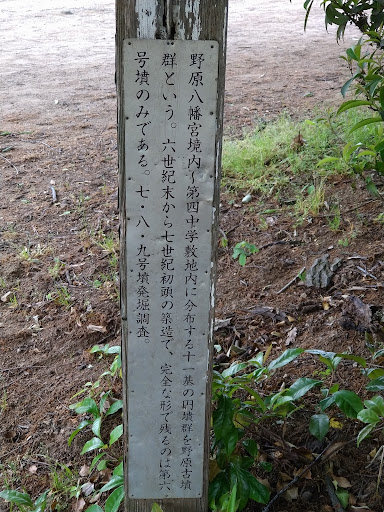 野原八幡宮境内~第四中学敷地内に分布する十一基の円墳群を野原古墳
群という。六世紀末から七世紀初頭の築造で、完全な形で残るのは第六
号墳のみである。七・八・九号墳発掘調査